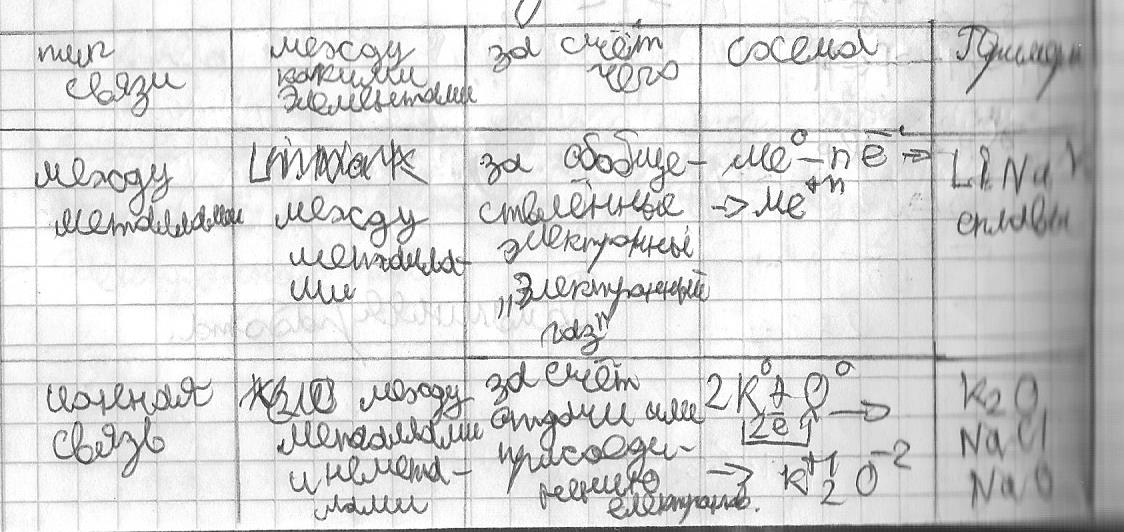 тип связи
между какими элементами
за счёт чего
схема
Пример
между металлами
между металлами
за обобще-
ствлённые
электронны
„Электронный
газ"
Me⁰ – n ē →
→ Me⁺ⁿ
Li Na
сплавы
ионная
связь
между
металлами
и немета-
лами
за счёт
отдачи или
присоеди-
нению
електронов.
2K⁰ + O⁰ →
2ē
→ K⁺¹₂O⁻²
K₂O
NaCl
NaO